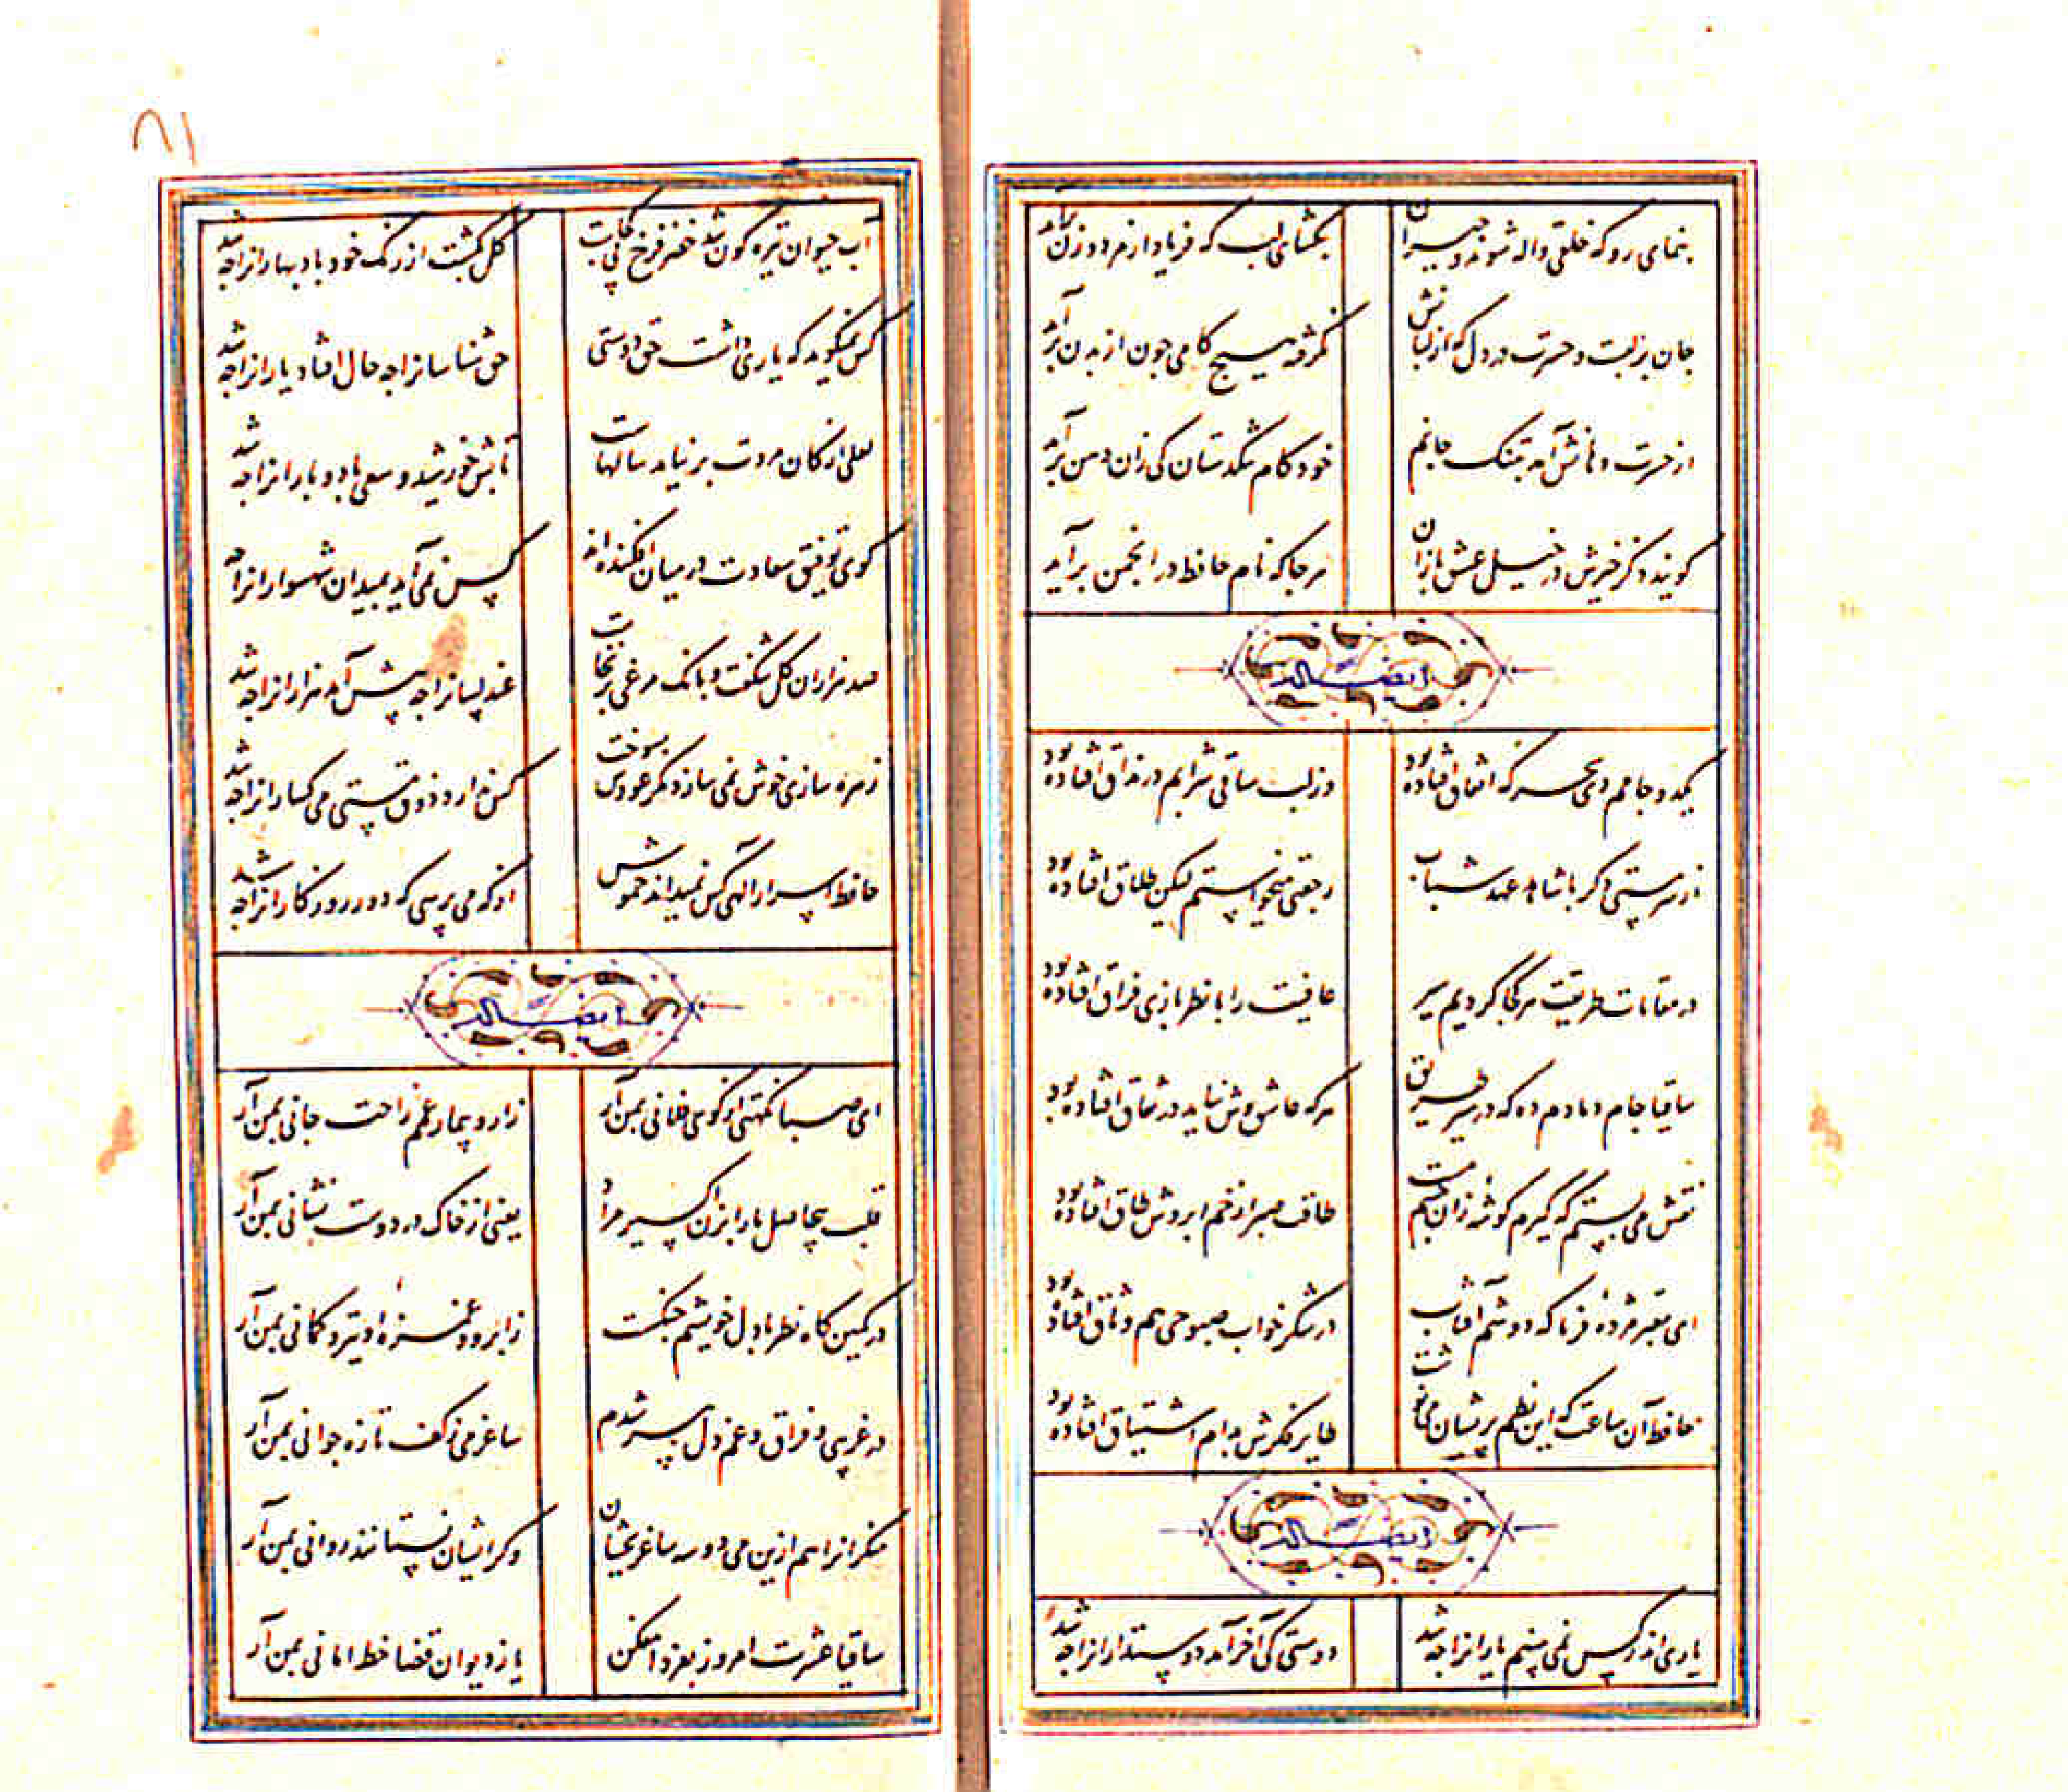 بنمای رو که خلقی واله شوند و حیران
بگشای لب که فریاد از مرد و زن برآید
جان بر لبست و حسرت در دل که از لبانش
نگرفته هیچ کامی جون از بدن برآید
از حسرت دهانش آمد بتنک جانم
خود کام تنگدستان کی زان دهن برآید
کویند ذکر خیرش در خیل عشق بازان
هر جا که نام حافظ در انجمن برآید
ایضاله
یکد و جامم دی سحر که اتفاق افتاده بود
وز لب ساقی شرابم در مذاق افتاده بود
از سر مستی دکر با شاهد عهد شباب
رجعتی میخواستم لیکن طلاق افتاده بود
در مقامات طریقت هر کجا کردیم سیر
عافیت را با نظر بازی فراق افتاده بود
ساقیا جام دمادم ده که در سیر طریق
هر که عاشق وش نیاید در نفاق افتاده بود
نقش می بستم که گیرم کوشه زان چشم مست
طاقت صبر از خم ابروش طاق افتاده بود
ای معبر مژدهٔ فرما که دوشم آفتاب
در شکر خواب صبوحی هم وثاق افتاده بود
حافظ آن ساعت که این نظم پریشان می نوشت
طایر فکرش بدام اشتیاق افتاده بود
ایضاله
یاری اندر کس نمی بینم یارانرا جه شد
دوستی کی آخر آمد دوستدارانرا جه شد
۸۱
آب حیوان تیره کون شد خضر فرخ پی کجاست
گل بگشت از رنک خود باد بهارانرا جه شد
کس نمیکوید که یاری داشت حق دوستی
حق شناسانرا جه حال افتاد یارانرا جه شد
لعلی از کان مروت بر نیامد سالهاست
تابش خورشید و سعی باد و بارانرا جه شد
کوی توفیق سعادت در میان افکنده اند
کس نمی آید بمیدان شهسوارانرا جه شد
صد هزاران گل شکفت و بانک مرغی بر نخاست
عندلیبانرا جه پیش آمد هزارانرا جه شد
زهره سازی خوش نمی سازد مکر عودش بسوخت
کس ندارد ذوق مستی می کسارانرا جه شد
حافظ اسرار الهی کس نمیداند خموش
از که می پرسی که دور روزکارانرا جه شد
ایضاله
ای صبا نکهتی از کوی فلانی بمن آر
زار و بیمار غمم راحت جانی بمن آر
قلب بیحاصل ما را بزن اکسیر مراد
یعنی از خاک در دوست نشانی بمن آر
در کمین کاه نظر با دل خویشم جنکست
ز ابرو و غمزه او تیر و کمانی بمن آر
در غریبی و فراق و غم دل پیر شدم
ساغر می ز کف تازه جوانی بمن آر
منکرانرا هم ازین می دو سه ساغر بچشان
وکر ایشان نستانند روانی بمن آر
ساقیا عشرت امروز بفردا مفکن
یا ز دیوان قضا خط امانی بمن آر